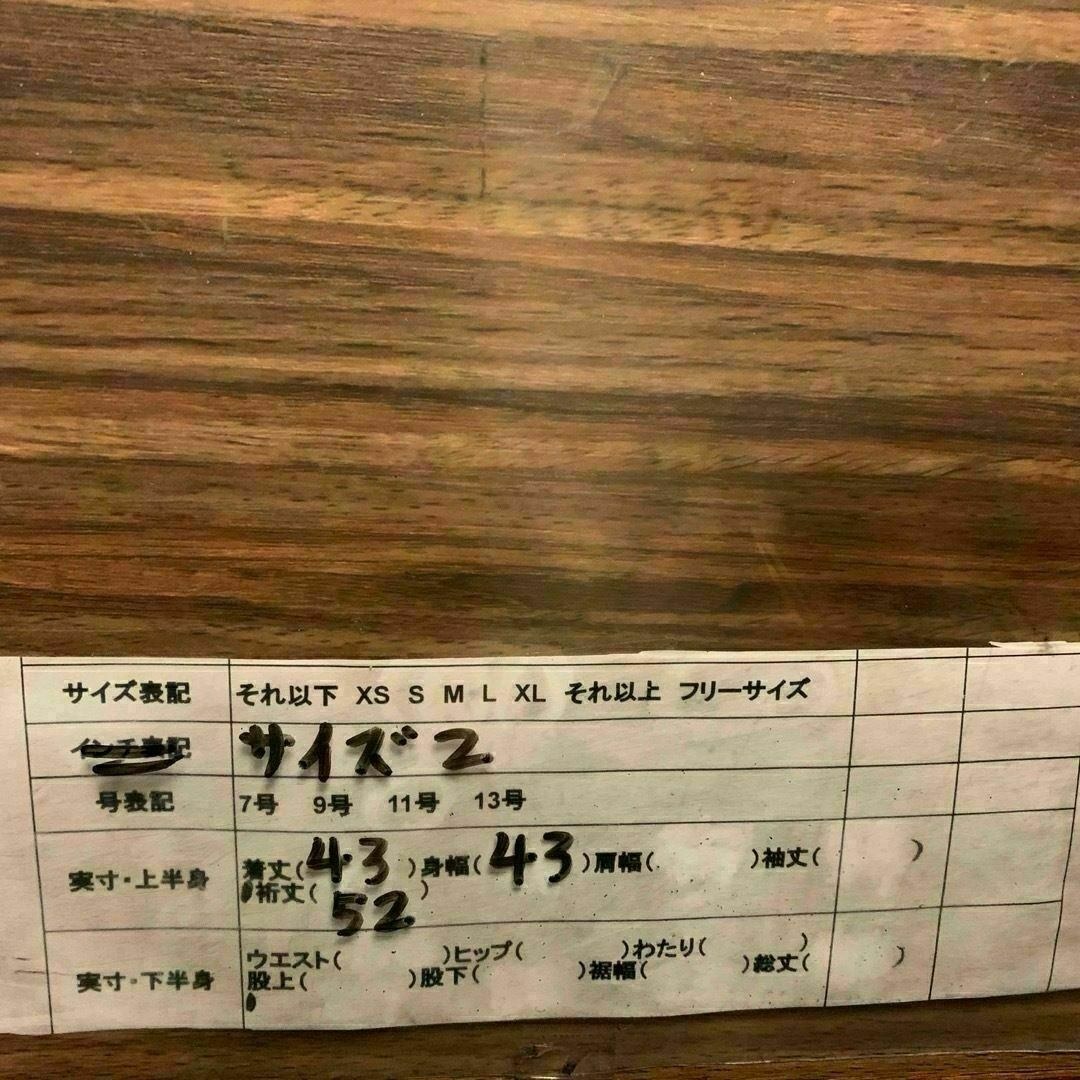 サイズ表記 それ以下 XS S M L XL それ以上 フリーサイズ
インチ表記 サイズ2
号表記 7号 9号 11号 13号
実寸・上半身 着丈(43)身幅(43)肩幅( )袖丈( )
裄丈(52)
実寸・下半身 ウエスト( )ヒップ( )わたり( )
股上( )股下( )裾幅( )総丈( )